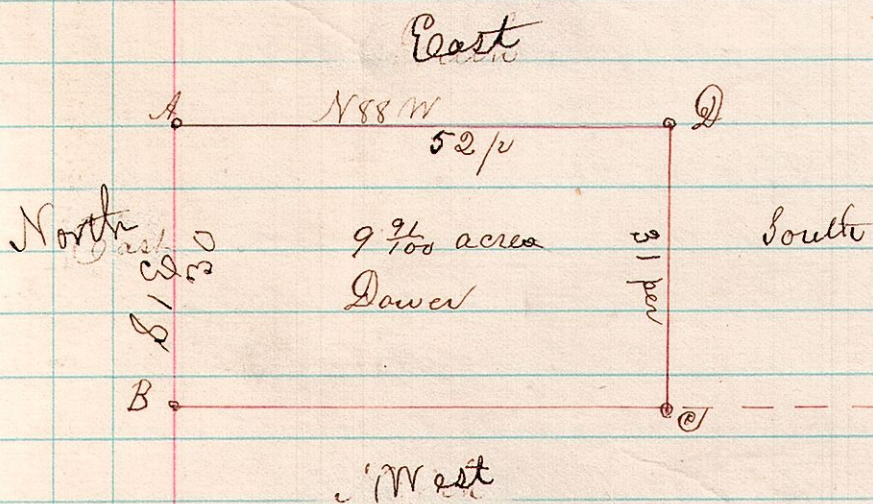 East
A
N 88 W
D
52 p
North
East
S 1 E
30
9 91/100 acres
Dower
31 per
South
B
C
West